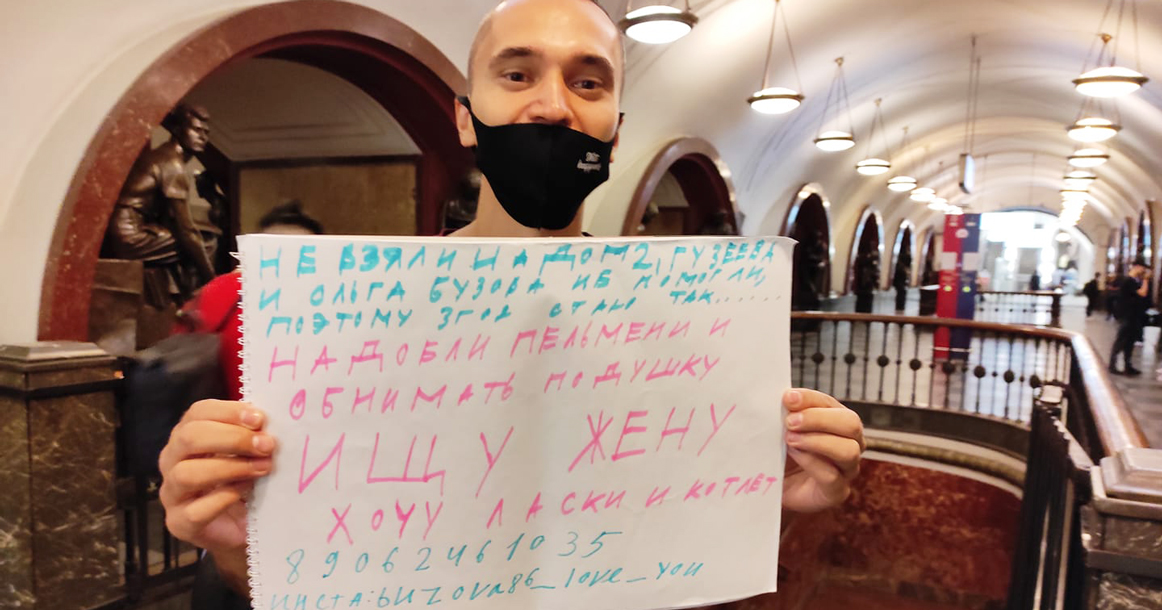 НЕ ВЗЯЛИ НА ДОМ2, ГУЗЕЕВА
И ОЛЬГА БУЗОВА НЕ ПОМОГЛИ,
ПОЭТОМУ 3ГОД СТАЛО ТАК......
НАДОБЛИ ПЕЛЬМЕНИ И
ОБНИМАТЬ ПОДУШКУ
ИЩУ ЖЕНУ
ХОЧУ ЛАСКИ И КОТЛЕТ
89062461035
ИНСТА:buzova86_love_you